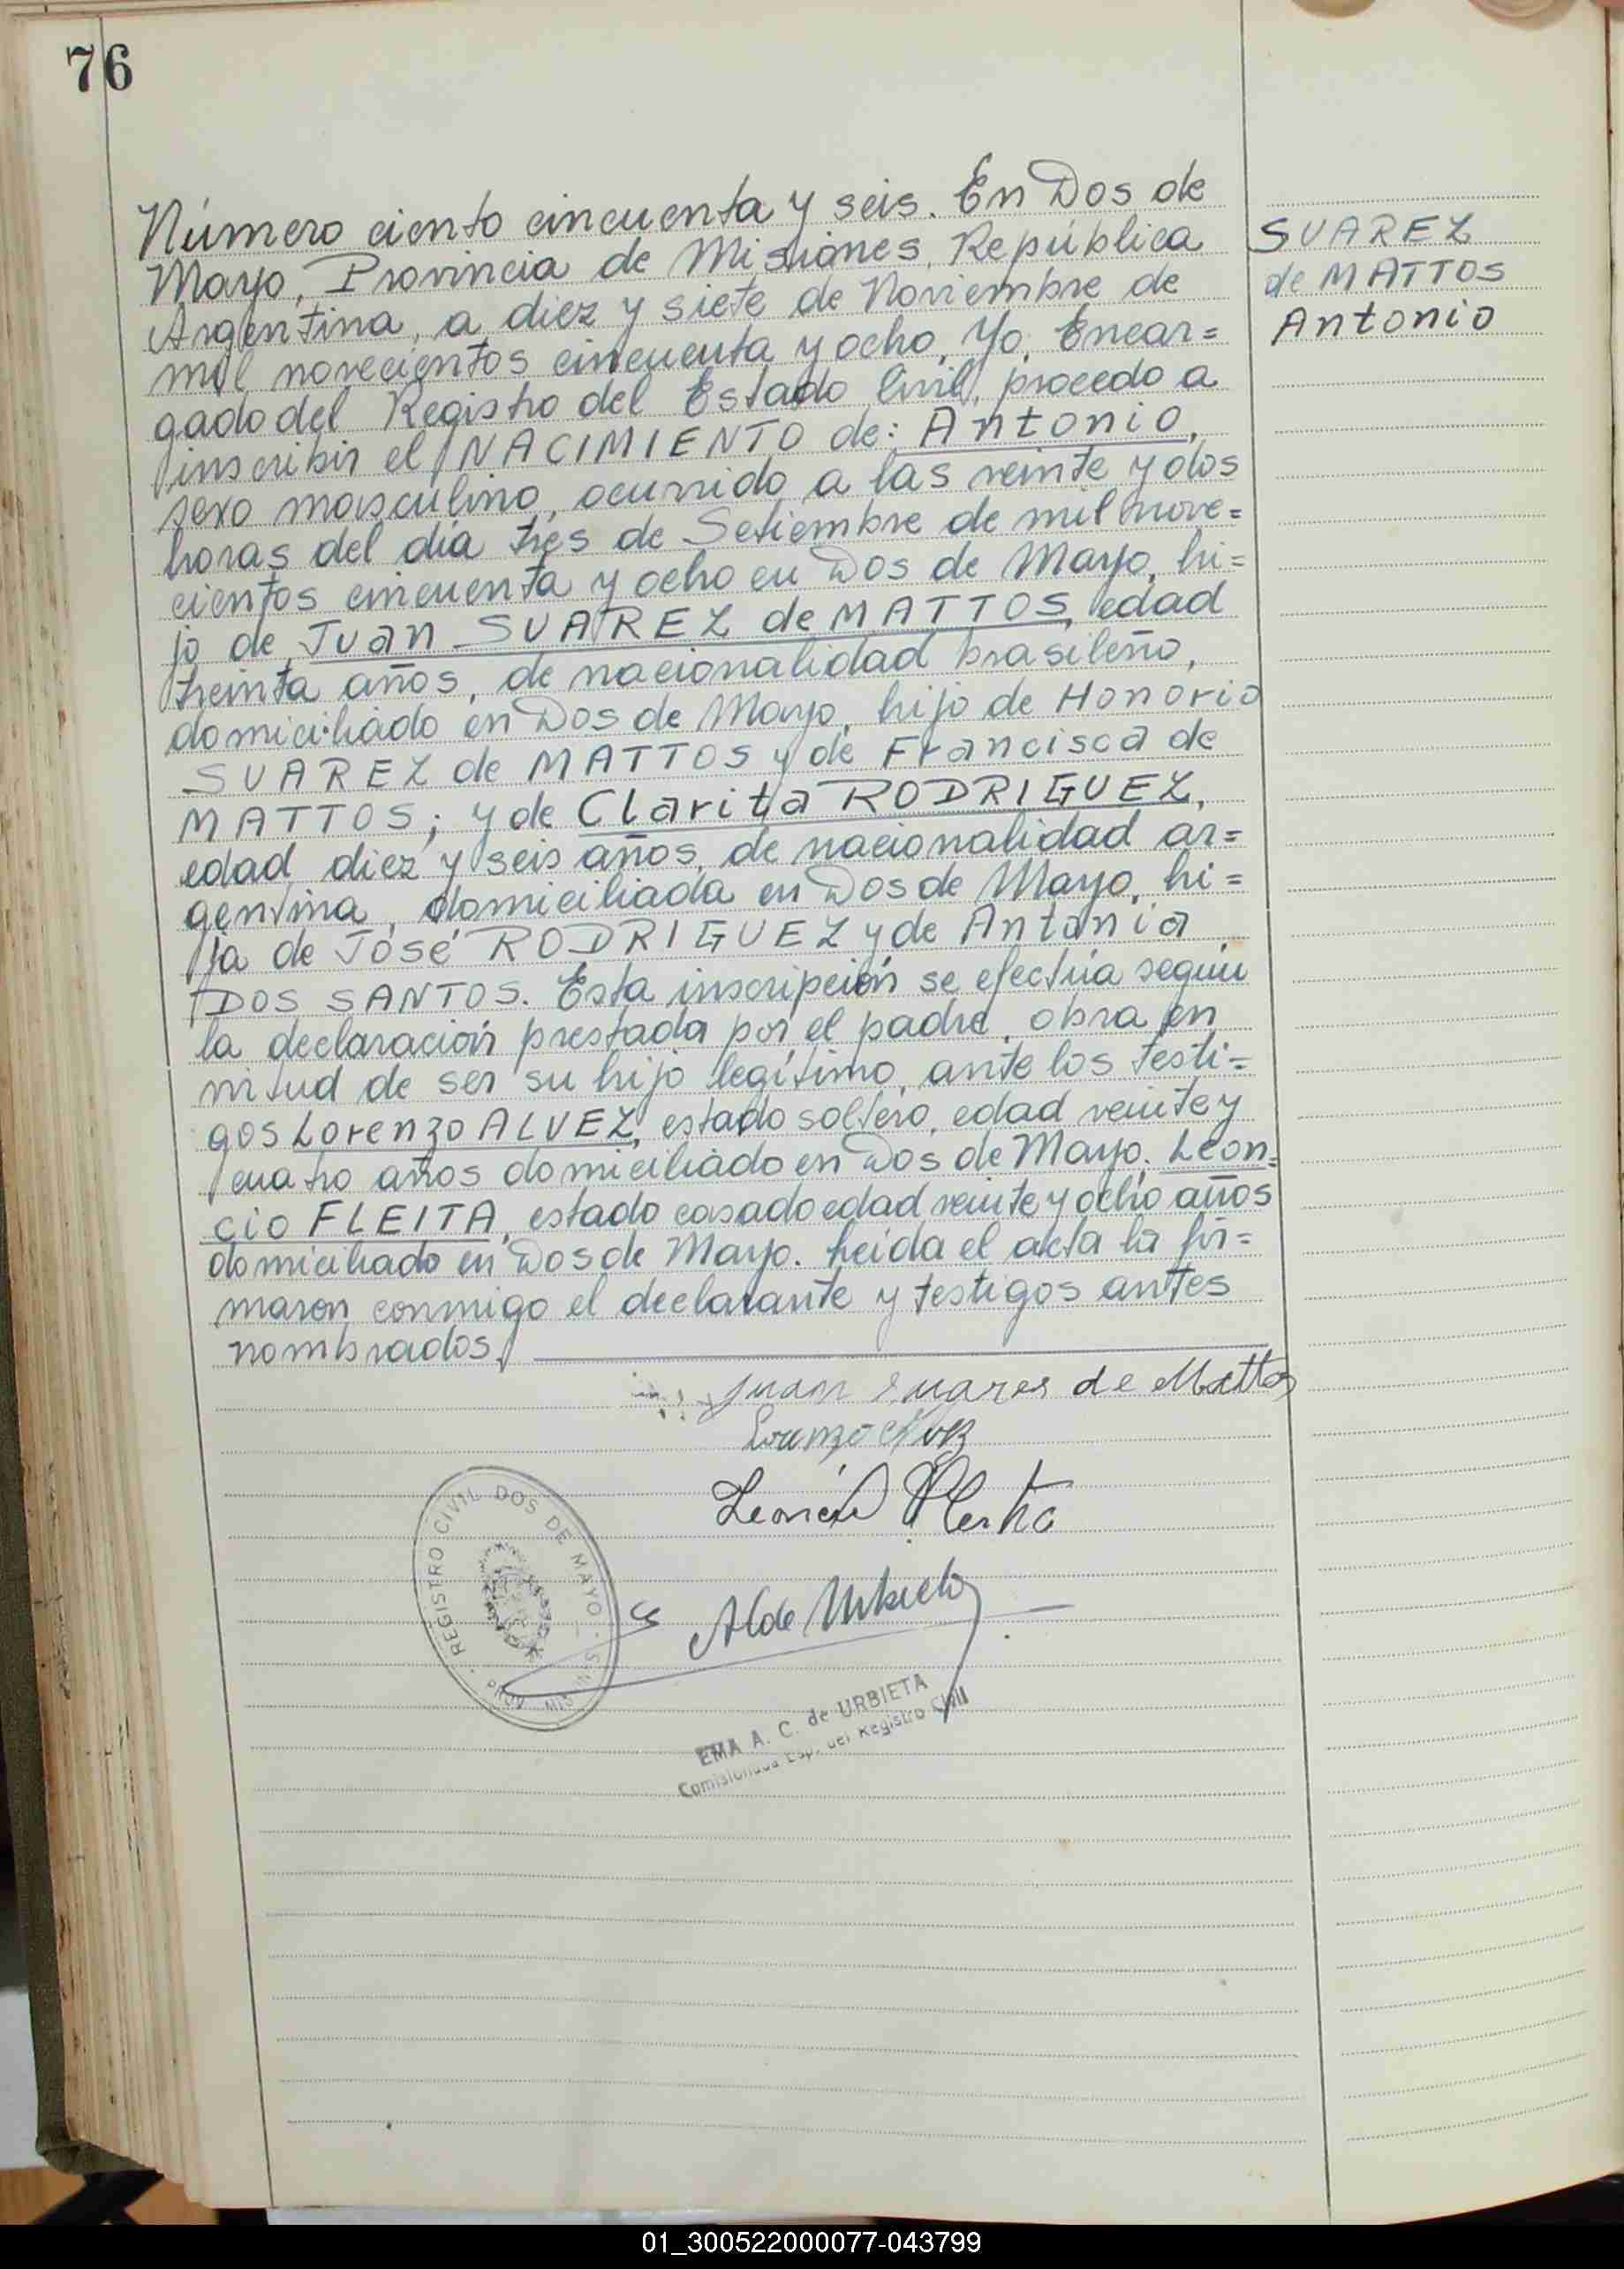 76
Número ciento cincuenta y seis. En Dos de
Mayo, Provincia de Misiones, República
Argentina, a diez y siete de Noviembre de
mil novecientos cincuenta y ocho, Yo, Encar=
gado del Registro del Estado Civil, procedo a
inscribir el NACIMIENTO de: Antonio,
sexo masculino, ocurrido a las veinte y dos
horas del día tres de Setiembre de mil nove=
cientos cincuenta y ocho en Dos de Mayo, hi=
jo de Juan SUAREZ de MATTOS, edad
treinta años, de nacionalidad brasileño,
domiciliado en Dos de Mayo, hijo de Honorio
SUAREZ de MATTOS y de Francisca de
MATTOS; y de Clarita RODRIGUEZ,
edad diez y seis años, de nacionalidad ar=
gentina, domiciliada en Dos de Mayo, hi=
ja de José RODRIGUEZ y de Antonia
DOS SANTOS. Esta inscripción se efectúa según
la declaración prestada por el padre, obra en
virtud de ser su hijo legítimo, ante los testi=
gos Lorenzo ALVEZ, estado soltero, edad veinte y
cuatro años domiciliado en Dos de Mayo. Leon=
cio FLEITA, estado casado edad veinte y ocho años
domiciliado en Dos de Mayo. Leida el acta la fir=
maron conmigo el declarante y testigos antes
nombrados.
SUAREZ
de MATTOS
Antonio
Juan Suares de Mattos
Lorenzo Alvez
Leoncio Fleita
REGISTRO CIVIL DOS DE MAYO
PROV. MISIONES
EMA A. C. de URBIETA
Comisionada Esp. del Registro Civil
01_300522000077-043799